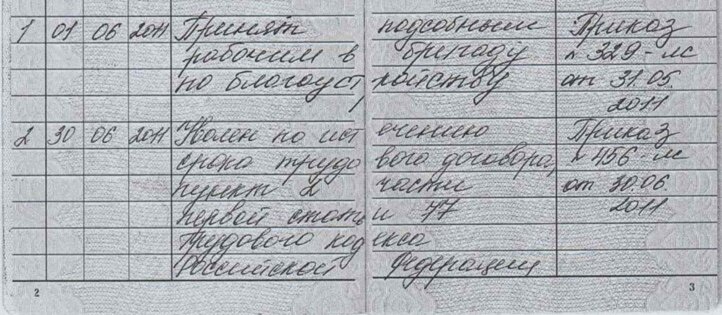 1 01 06 2011 Принят подсобным Приказ
рабочим в бригаду № 329-лс
по благоустройству от 31.05.
2011
2 30 06 2011 Уволен по истечению Приказ
срока трудового договора, № 456-лс
пункт 2 части от 30.06.
первой статьи 77 2011
Трудового кодекса
Российской Федерации
2 3